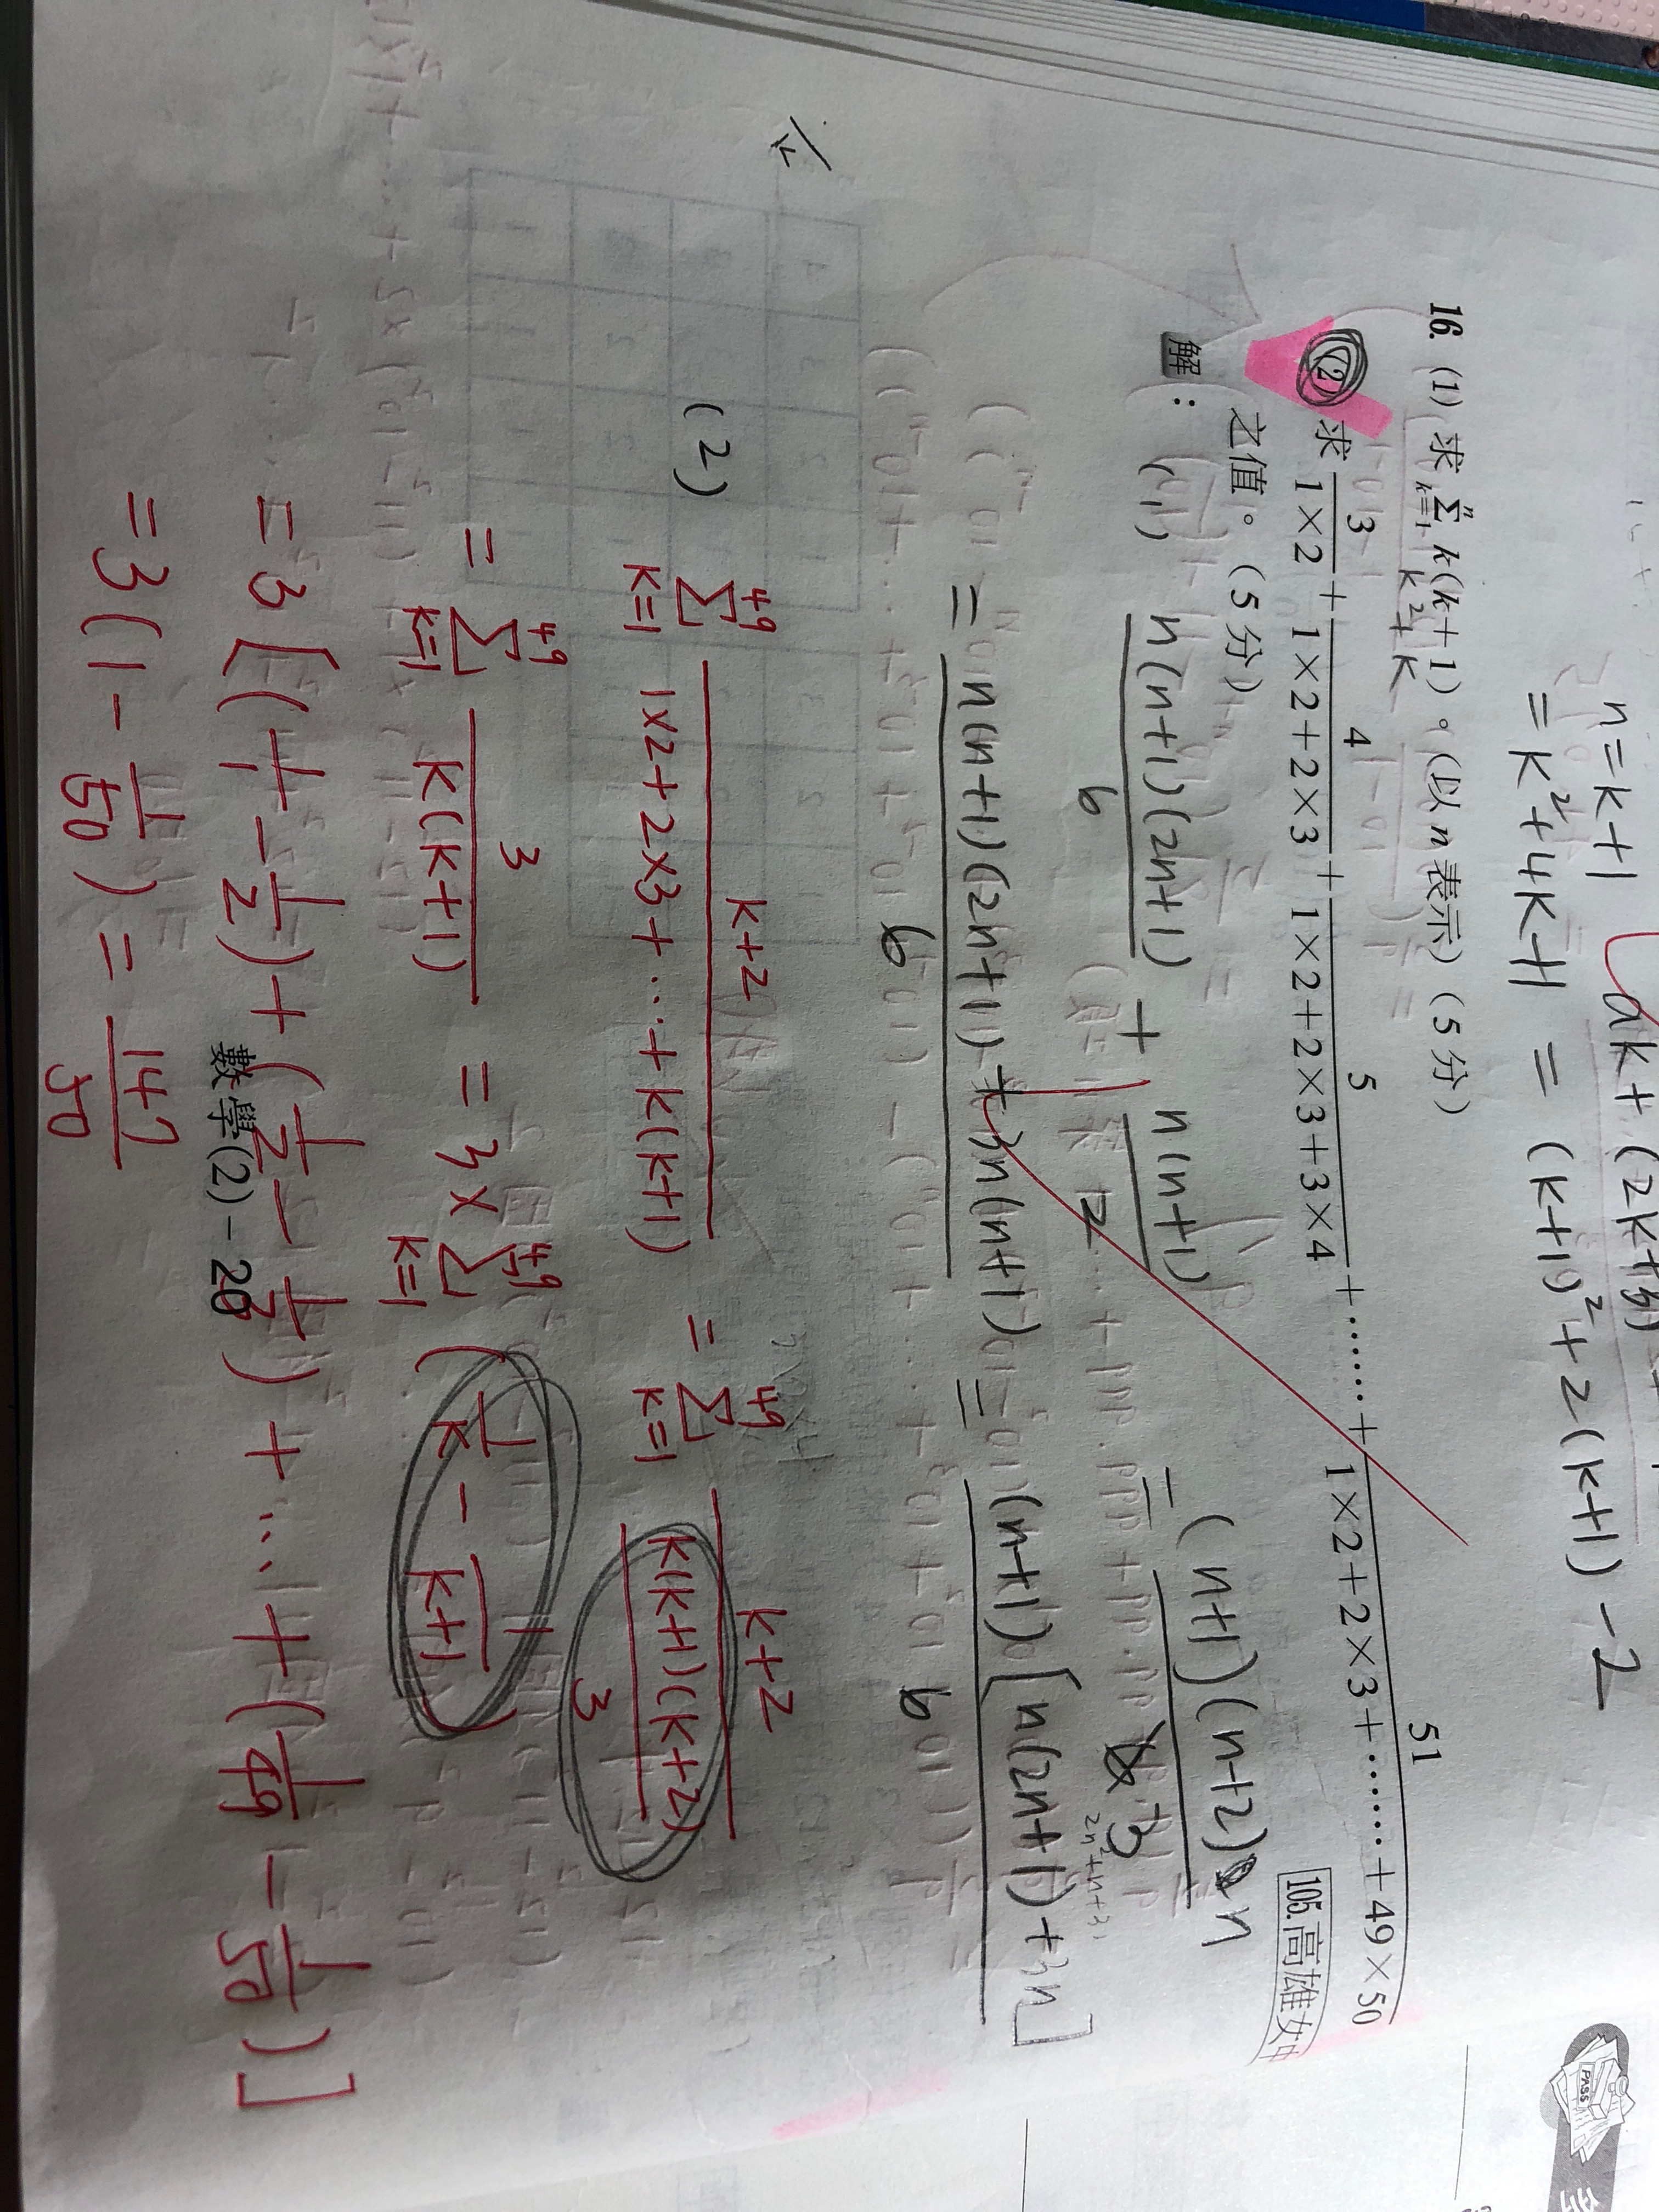 ak+(2k+b)
n=k+1
=k²+4k+1 = (k+1)²+2(k+1)-2
16. (1) 求 \sum_{k=1}^{n} k(k+1)。(以 n 表示)(5 分)
k²+k
(2) 求 \frac{3}{1×2}+\frac{4}{1×2+2×3}+\frac{5}{1×2+2×3+3×4}+……+\frac{51}{1×2+2×3+……+49×50}
之值。(5 分)
105.高雄女中
解: (1) \frac{n(n+1)(2n+1)}{6} + \frac{n(n+1)}{2}
= \frac{n(n+1)(2n+1)+3n(n+1)}{6} = \frac{(n+1)[n(2n+1)+3n]}{6}
2n²+n+3
= \frac{(n+1)(n+2)n}{3}
(2) \sum_{k=1}^{49} \frac{k+2}{1×2+2×3+…+k(k+1)} = \sum_{k=1}^{49} \frac{k+2}{\frac{k(k+1)(k+2)}{3}}
= \sum_{k=1}^{49} \frac{3}{k(k+1)} = 3× \sum_{k=1}^{49} (\frac{1}{k} - \frac{1}{k+1})
= 3[(\frac{1}{1}-\frac{1}{2})+(\frac{1}{2}-\frac{1}{3})+…+(\frac{1}{49}-\frac{1}{50})]
= 3(1-\frac{1}{50}) = \frac{147}{50}
數學(2)-20
PASS